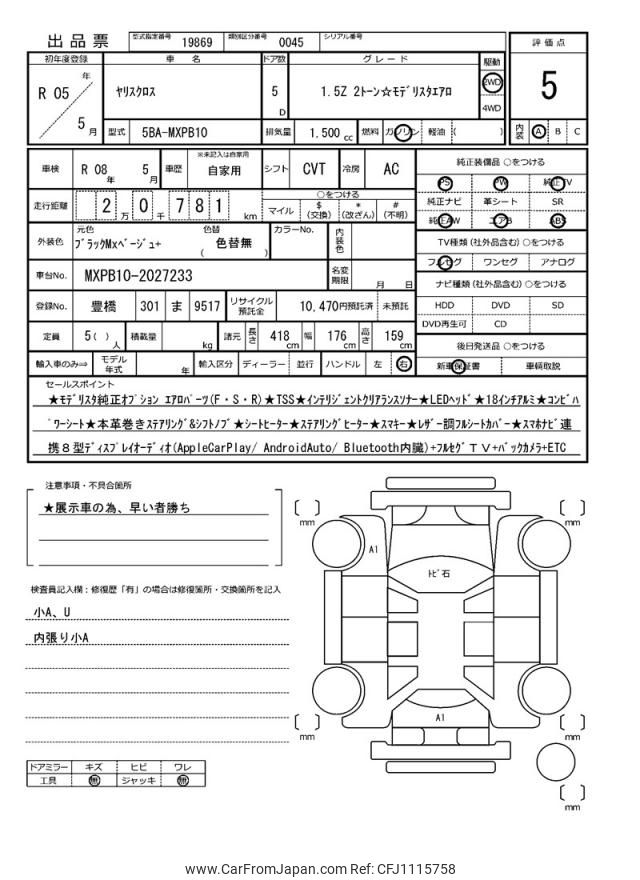 出品票
型式指定番号 19869 類別区分番号 0045 シリアル番号
初年度登録 車名 ドア数 グレード 駆動 評価点
R 05 年 5 月
ヤリスクロス 5 D 1.5Z 2トーン☆モデリスタエアロ 2WD 4WD
5
型式 5BA-MXPB10 排気量 1.500 cc 燃料 ガソリン 軽油 ( )
内装 A B C
車検 R 08 年 5 月 車歴 ※未記入は自家用 自家用 シフト CVT 冷房 AC
純正装備品 ○をつける
PS PW 純正TV
純正ナビ 革シート SR
純正AW エアB ABS
走行距離 2 万 0 千 7 8 1 km
○をつける
マイル $ (交換) * (改ざん) # (不明)
外装色 元色 ブラックMxベージュ+ 色替 色替無 ( ) カラーNo. 内装色
TV種類 (社外品含む) ○をつける
フルセグ ワンセグ アナログ
車台No. MXPB10-2027233 名変期限 月 日
ナビ種類 (社外品含む) ○をつける
HDD DVD SD
DVD再生可 CD
登録No. 豊橋 301 ま 9517 リサイクル預託金 10.470円預託済 未預託
定員 5( ) 人 積載量 kg 諸元 長さ 418 cm 幅 176 cm 高さ 159 cm
後日発送品 ○をつける
新車保証書 車輌取説
輸入車のみ⇨ モデル年式 年 輸入区分 ディーラー 並行 ハンドル 左 右
セールスポイント
★モデリスタ純正オプション エアロパーツ(F・S・R)★TSS★インテリジェントクリアランスソナー★LEDヘッド★18インチアルミ★コンビハ
゚ワーシート★本革巻きステアリング&シフトノブ★シートヒーター★ステアリングヒーター★スマキー★レザー調フルシートカバー★スマホナビ連
携8型ディスプレイオーディオ(AppleCarPlay/ AndroidAuto/ Bluetooth内臓)+フルセグTV+バックカメラ+ETC
注意事項・不具合箇所
★展示車の為、早い者勝ち
検査員記入欄:修復歴「有」の場合は修復箇所・交換箇所を記入
小A、U
内張り小A
ドアミラー キズ ヒビ ワレ
工具 無 ジャッキ 無
mm
mm
A1
トビ石
A1
mm
mm
mm
www.CarFromJapan.com Ref: CFJ1115758